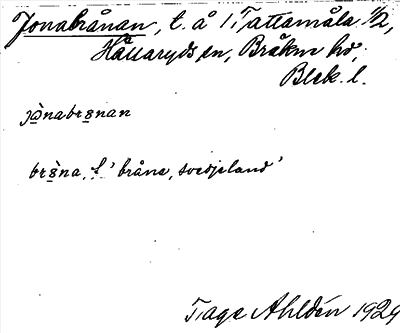 Jonabrånan, t. å 1 Tattamåla 1/2,
Hällaryds sn, Bräkne hd,
Blek. l.
jònabrånan
brå̀na, f. 'bråne, svedjeland'
Tage Ahldén 1929